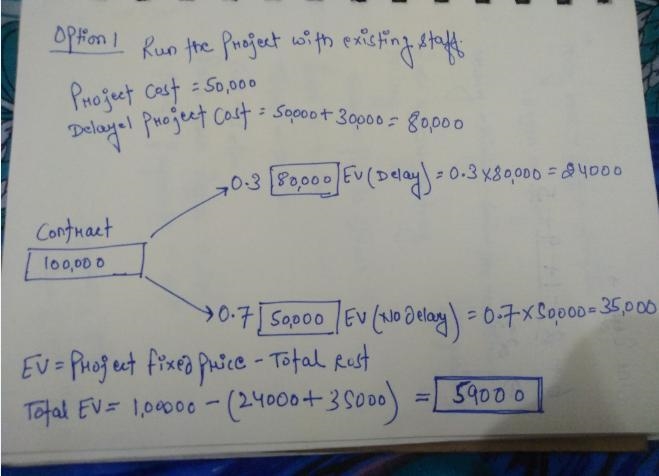 Option 1 Run the Project with existing staff.
Project Cost = 50,000
Delayel Project Cost = 50,000 + 30,000 = 80,000
0.3 80,000 EV (Delay) = 0.3 x 80,000 = 24000
Contract
100,000
0.7 50,000 EV (No Delay) = 0.7 x 50,000 = 35,000
EV = Project fixed price - Total Cost
Total EV = 1,00000 - (24000 + 35000) = 59000